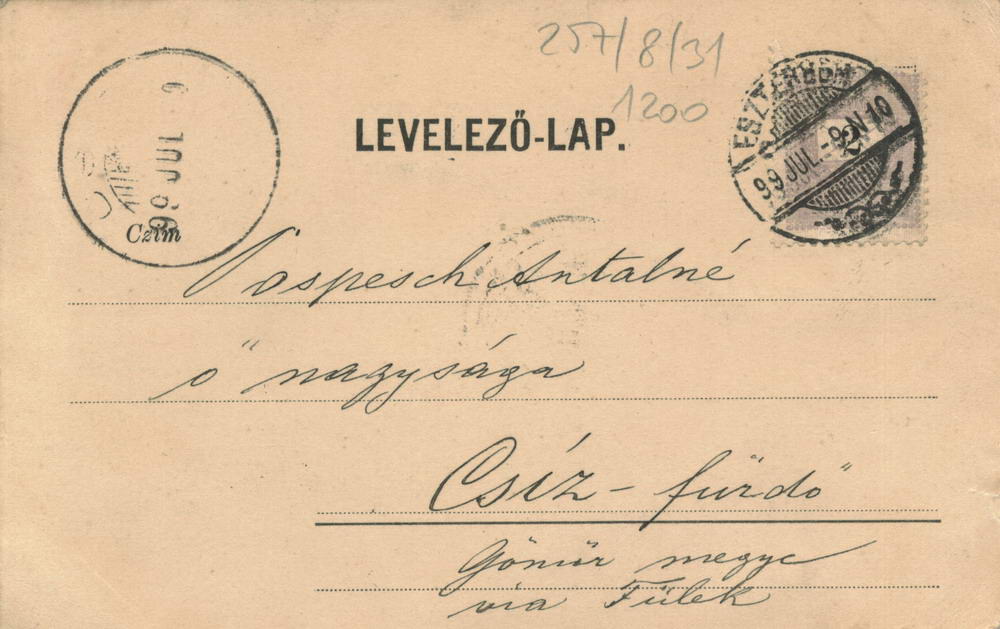 257/8/31
1200
LEVELEZŐ-LAP.
ESZTERGOM
99 JUL.-9.N 10
2
99 JUL 9
Czim
Vospesch Antalné
ő nagysága
Csíz-fürdő
Gömör megye
via Fülek